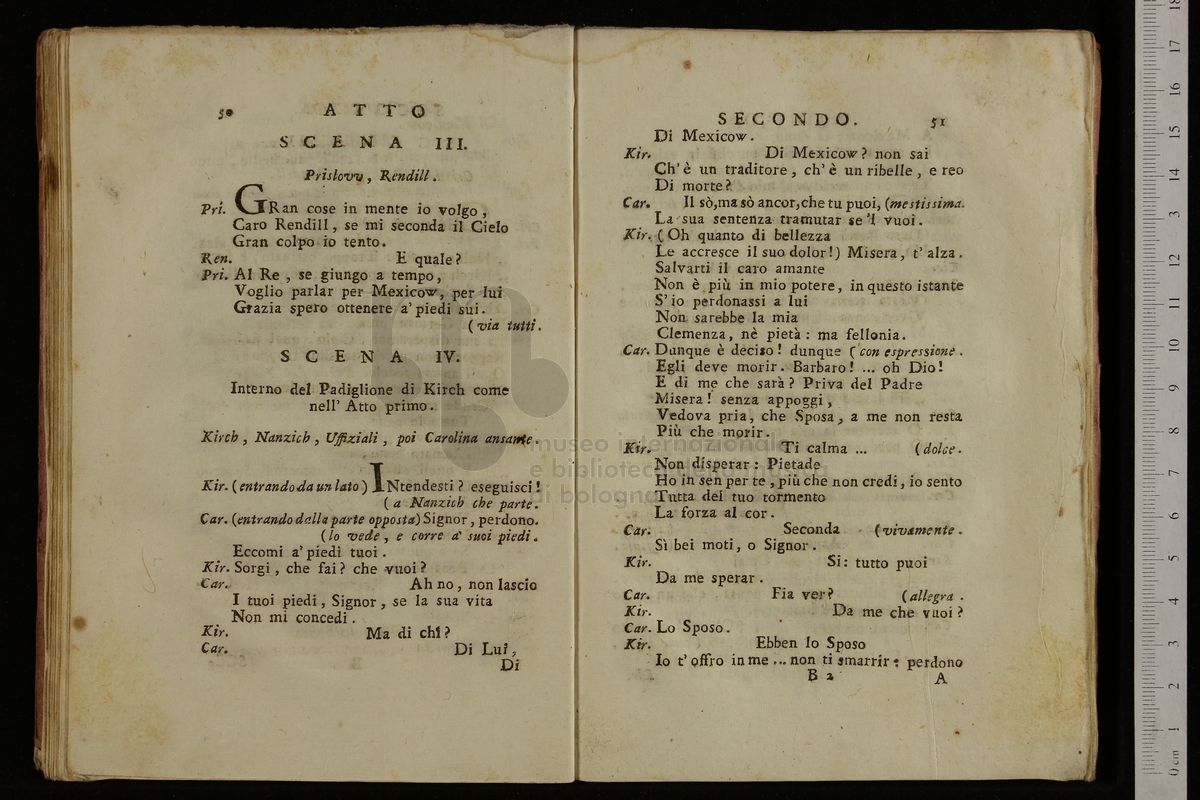 50 ATTO
SCENA III.
Prislovv, Rendill.
Pri. GRan cose in mente io volgo,
Caro Rendill, se mi seconda il Cielo
Gran colpo io tento.
Ren. E quale?
Pri. Al Re, se giungo a tempo,
Voglio parlar per Mexicow, per lui
Grazia spero ottenere a' piedi sui.
(via tutti.
SCENA IV.
Interno del Padiglione di Kirch come
nell' Atto primo.
Kirch, Nanzich, Uffiziali, poi Carolina ansante.
Kir. (entrando da un lato) INtendesti? eseguisci!
(a Nanzich che parte.
Car. (entrando dalla parte opposta) Signor, perdono.
(lo vede, e corre a' suoi piedi.
Eccomi a' piedi tuoi.
Kir. Sorgi, che fai? che vuoi?
Car. Ah no, non lascio
I tuoi piedi, Signor, se la sua vita
Non mi concedi.
Kir. Ma di chi?
Car. Di Lui,
Di
SECONDO. 51
Di Mexicow.
Kir. Di Mexicow? non sai
Ch' è un traditore, ch' è un ribelle, e reo
Di morte?
Car. Il sò, ma sò ancor, che tu puoi, (mestissima.
La sua sentenza tramutar se 'l vuoi.
Kir. (Oh quanto di bellezza
Le accresce il suo dolor!) Misera, t' alza.
Salvarti il caro amante
Non è più in mio potere, in questo istante
S' io perdonassi a lui
Non sarebbe la mia
Clemenza, nè pietà: ma fellonia.
Car. Dunque è deciso! dunque (con espressione.
Egli deve morir. Barbaro! ... oh Dio!
E di me che sarà? Priva del Padre
Misera! senza appoggi,
Vedova pria, che Sposa, a me non resta
Più che morir.
Kir. Ti calma ... (dolce.
Non disperar: Pietade
Ho in sen per te, più che non credi, io sento
Tutta del tuo tormento
La forza al cor.
Car. Seconda (vivamente.
Sì bei moti, o Signor.
Kir. Si: tutto puoi
Da me sperar.
Car. Fia ver? (allegra.
Kir. Da me che vuoi?
Car. Lo Sposo.
Kir. Ebben lo Sposo
Io t' offro in me ... non ti smarrir: perdono
B 2 A
museo internazionale
e biblioteca della musica
di bologna